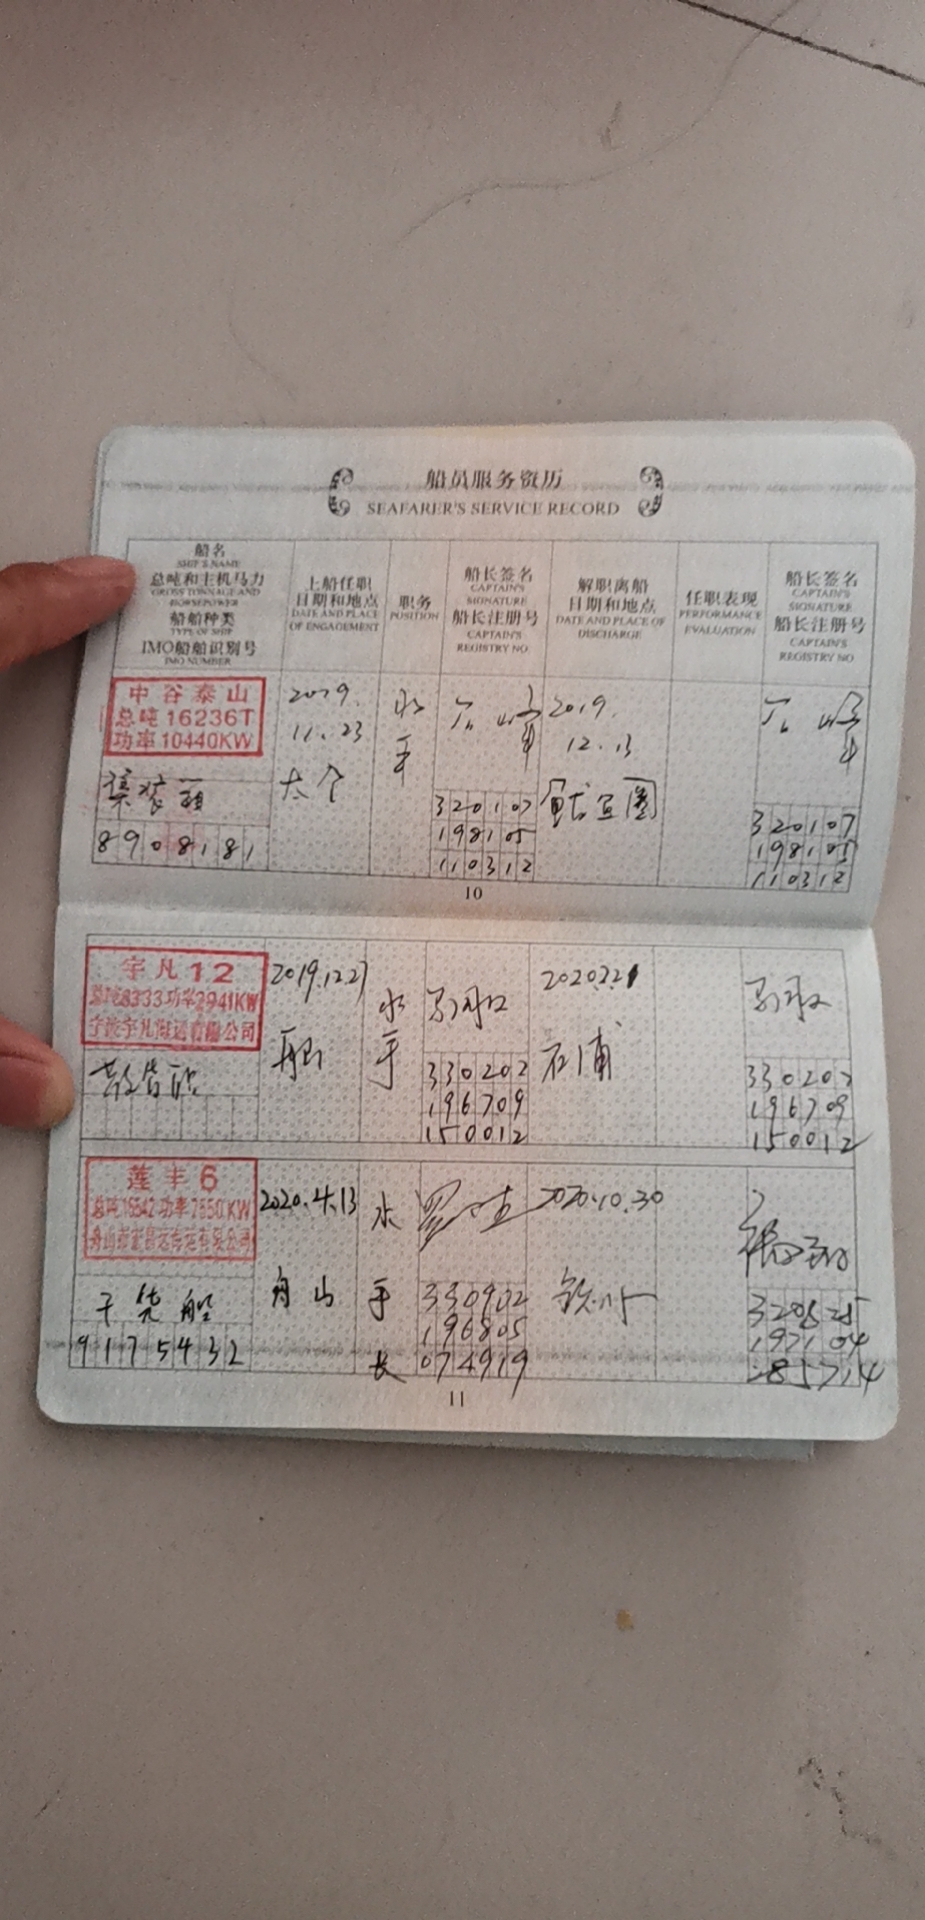 船员服务资历
SEAFARER'S SERVICE RECORD
船名
SHIP'S NAME
总吨和主机马力
GROSS TONNAGE AND
HORSEPOWER
船舶种类
TYPE OF SHIP
IMO船舶识别号
IMO NUMBER
上船任职
日期和地点
DATE AND PLACE
OF ENGAGEMENT
职务
POSITION
船长签名
CAPTAIN'S
SIGNATURE
船长注册号
CAPTAIN'S
REGISTRY NO.
解职离船
日期和地点
DATE AND PLACE OF
DISCHARGE
任职表现
PERFORMANCE
EVALUATION
船长签名
CAPTAIN'S
SIGNATURE
船长注册号
CAPTAIN'S
REGISTRY NO
中谷泰山
总吨16236T
功率10440KW
集装箱
8908181
2019.
11.23
太仓
水
手
320107
198105
110312
2019.
12.13
320107
198105
110312
10
宇凡12
总吨8333功率2941KW
宁波宇凡海运有限公司
散货船
2019.12.27
水
手
330202
196709
150012
石浦
330202
196709
150012
莲丰6
干货船
9175432
2020.4.13
舟山
水
手
长
330902
196805
2020.10.30
11